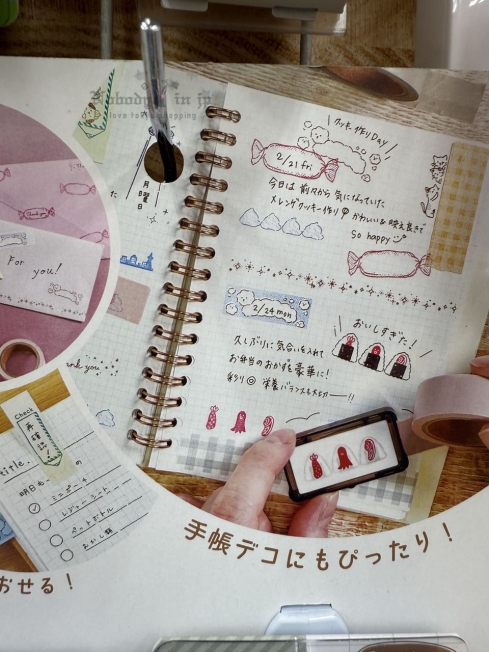 Nobody's in jp
love to shopping
クッキー作りDay
2/21 fri
今日は前々から気になっていた
メレンゲクッキー作り かわいい&映え良きで
So happy
2/24 mon
おいしすぎた!
久しぶりに気合いを入れて
お弁当のおかずを豪華に!
彩り◎ 栄養バランスも大切ーー!!
月
曜
日
For you!
Thank you
ank you
Check
再確認!
title.
明日もの
ミニポーチ
レジャーシート
ペットボトル
おかし類
手帳デコにもぴったり!
おせる!